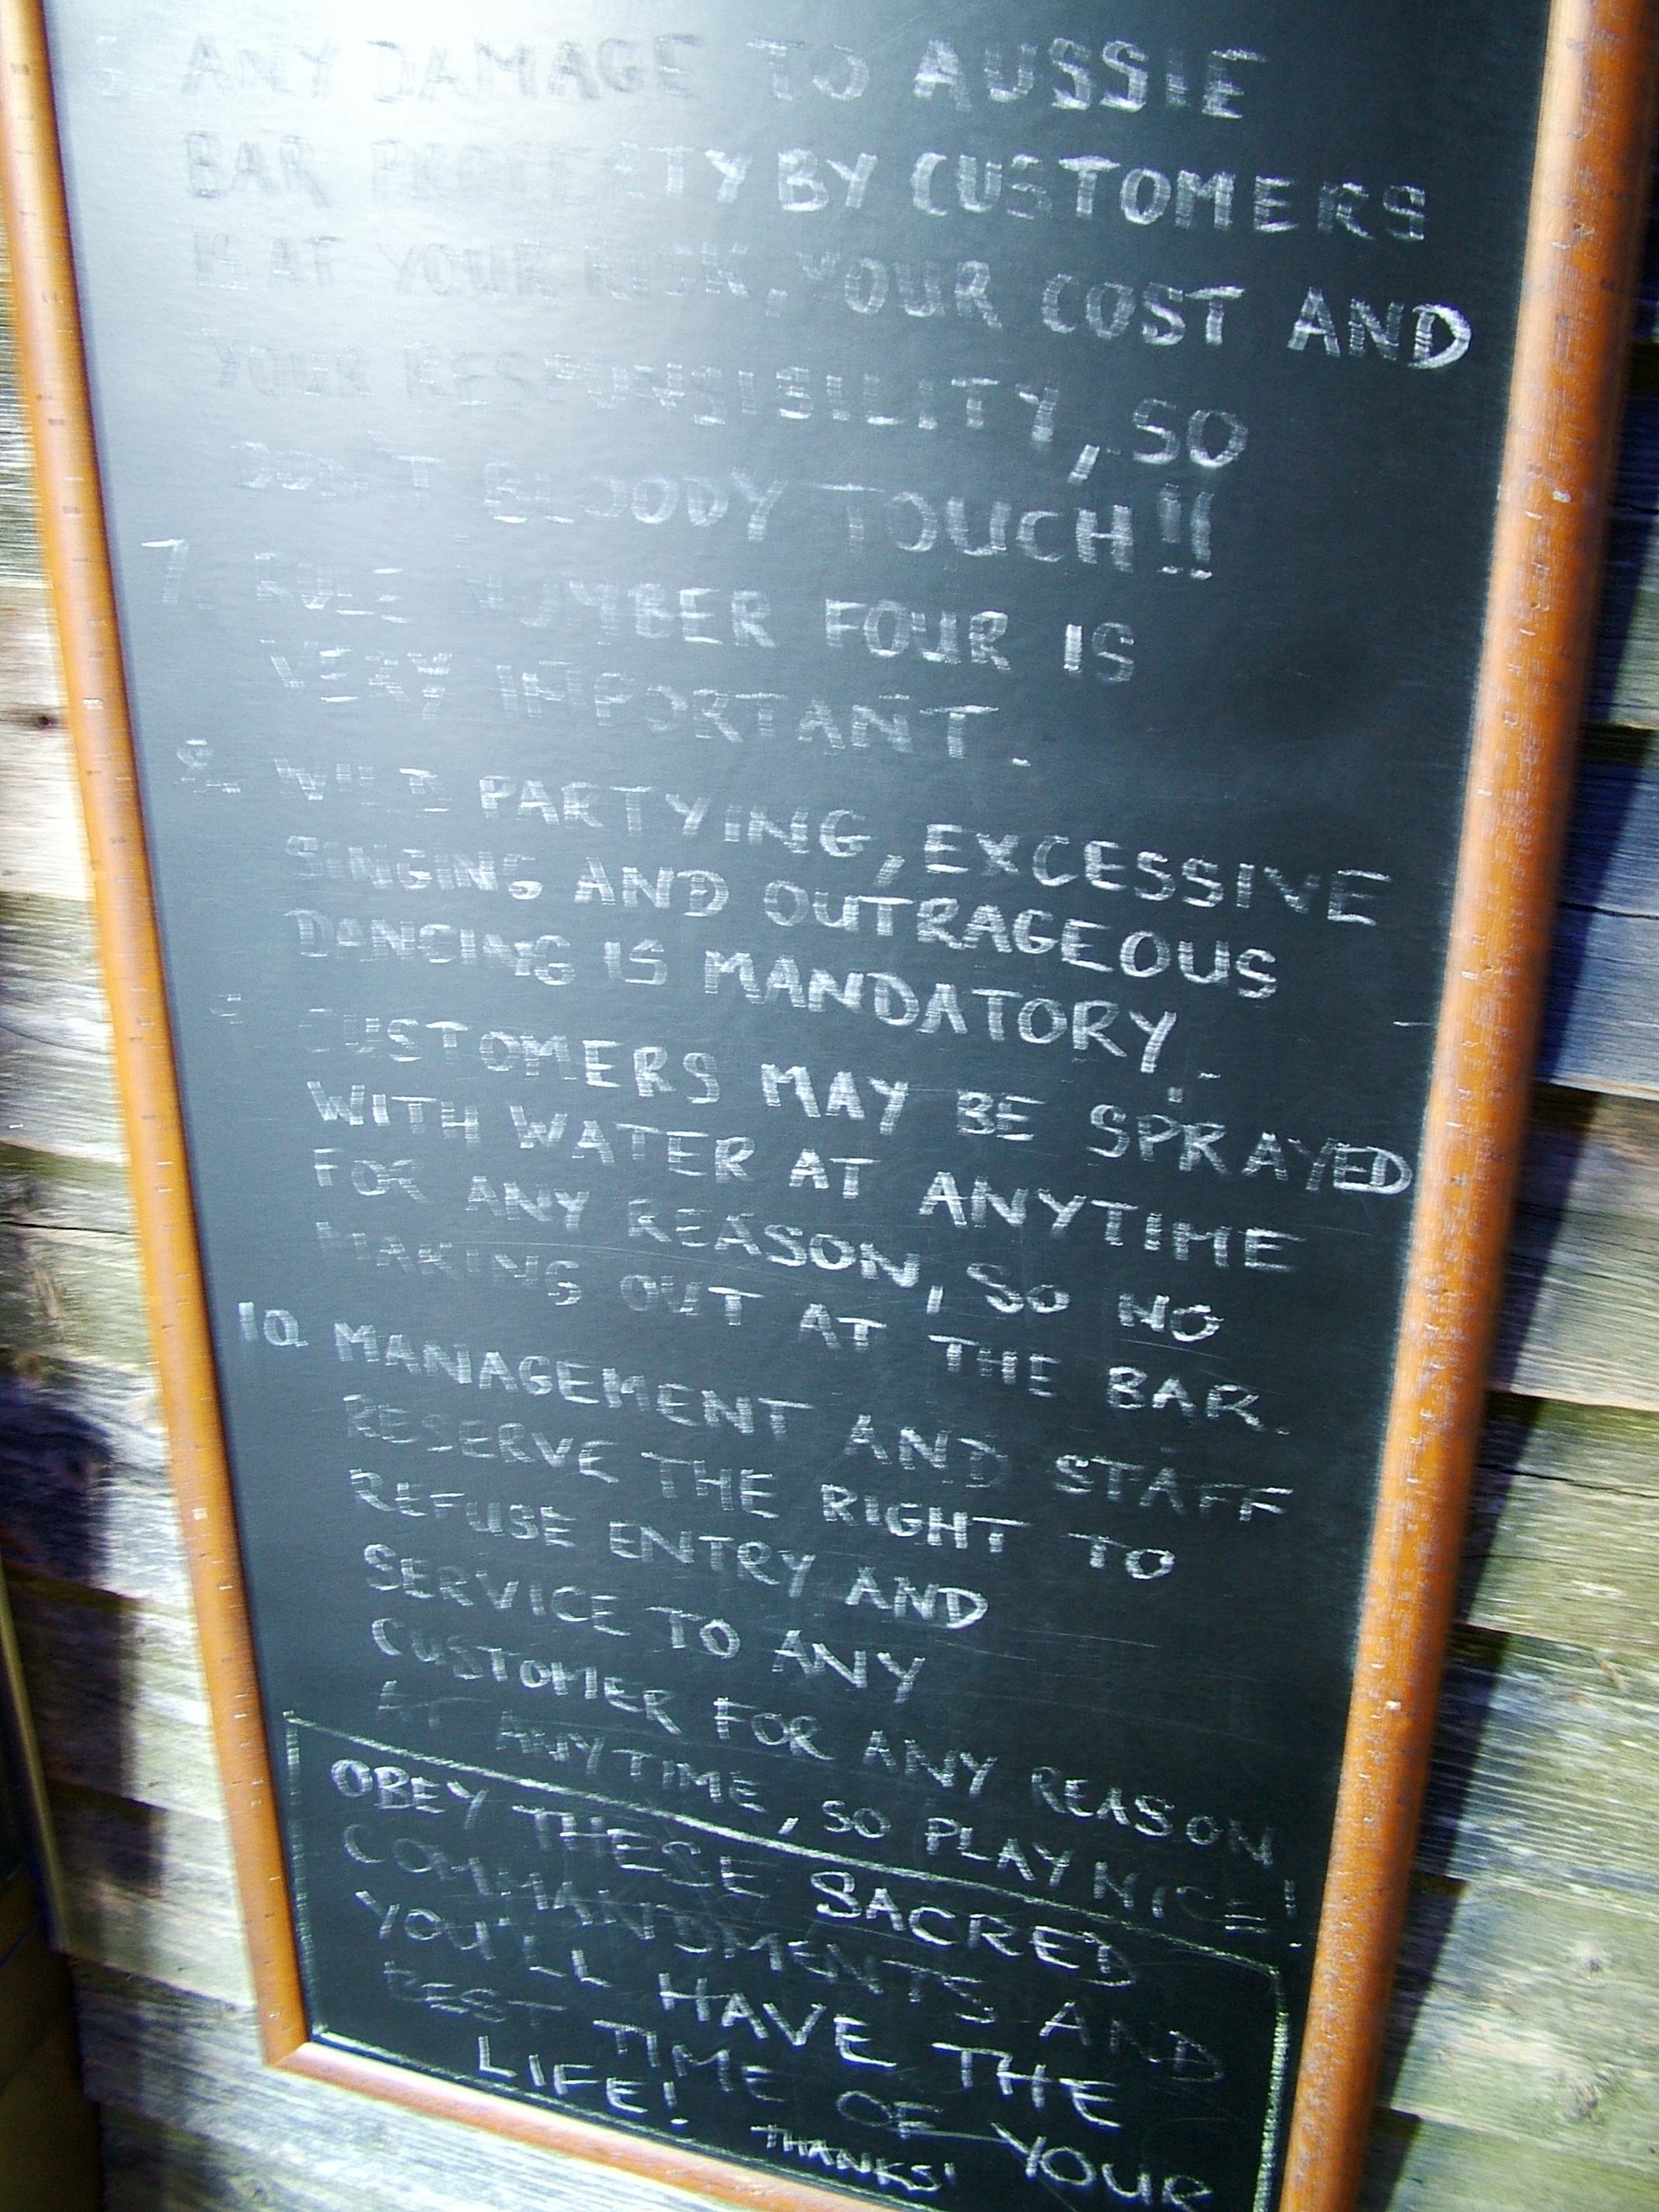 6. ANY DAMAGE TO AUSSIE
BAR PROPERTY BY CUSTOMERS
IS AT YOUR RISK, YOUR COST AND
YOUR RESPONSIBILITY, SO
DON'T BLOODY TOUCH!!
7. RULE NUMBER FOUR IS
VERY IMPORTANT.
8. WILD PARTYING, EXCESSIVE
SINGING AND OUTRAGEOUS
DANCING IS MANDATORY.
CUSTOMERS MAY BE SPRAYED
WITH WATER AT ANYTIME
FOR ANY REASON, SO NO
MAKING OUT AT THE BAR.
10. MANAGEMENT AND STAFF
RESERVE THE RIGHT TO
REFUSE ENTRY AND
SERVICE TO ANY
CUSTOMER FOR ANY REASON
AT ANYTIME, SO PLAY NICE!
OBEY THESE SACRED
COMMANDMENTS AND
YOU'LL HAVE THE
BEST TIME OF YOUR
LIFE! THANKS!